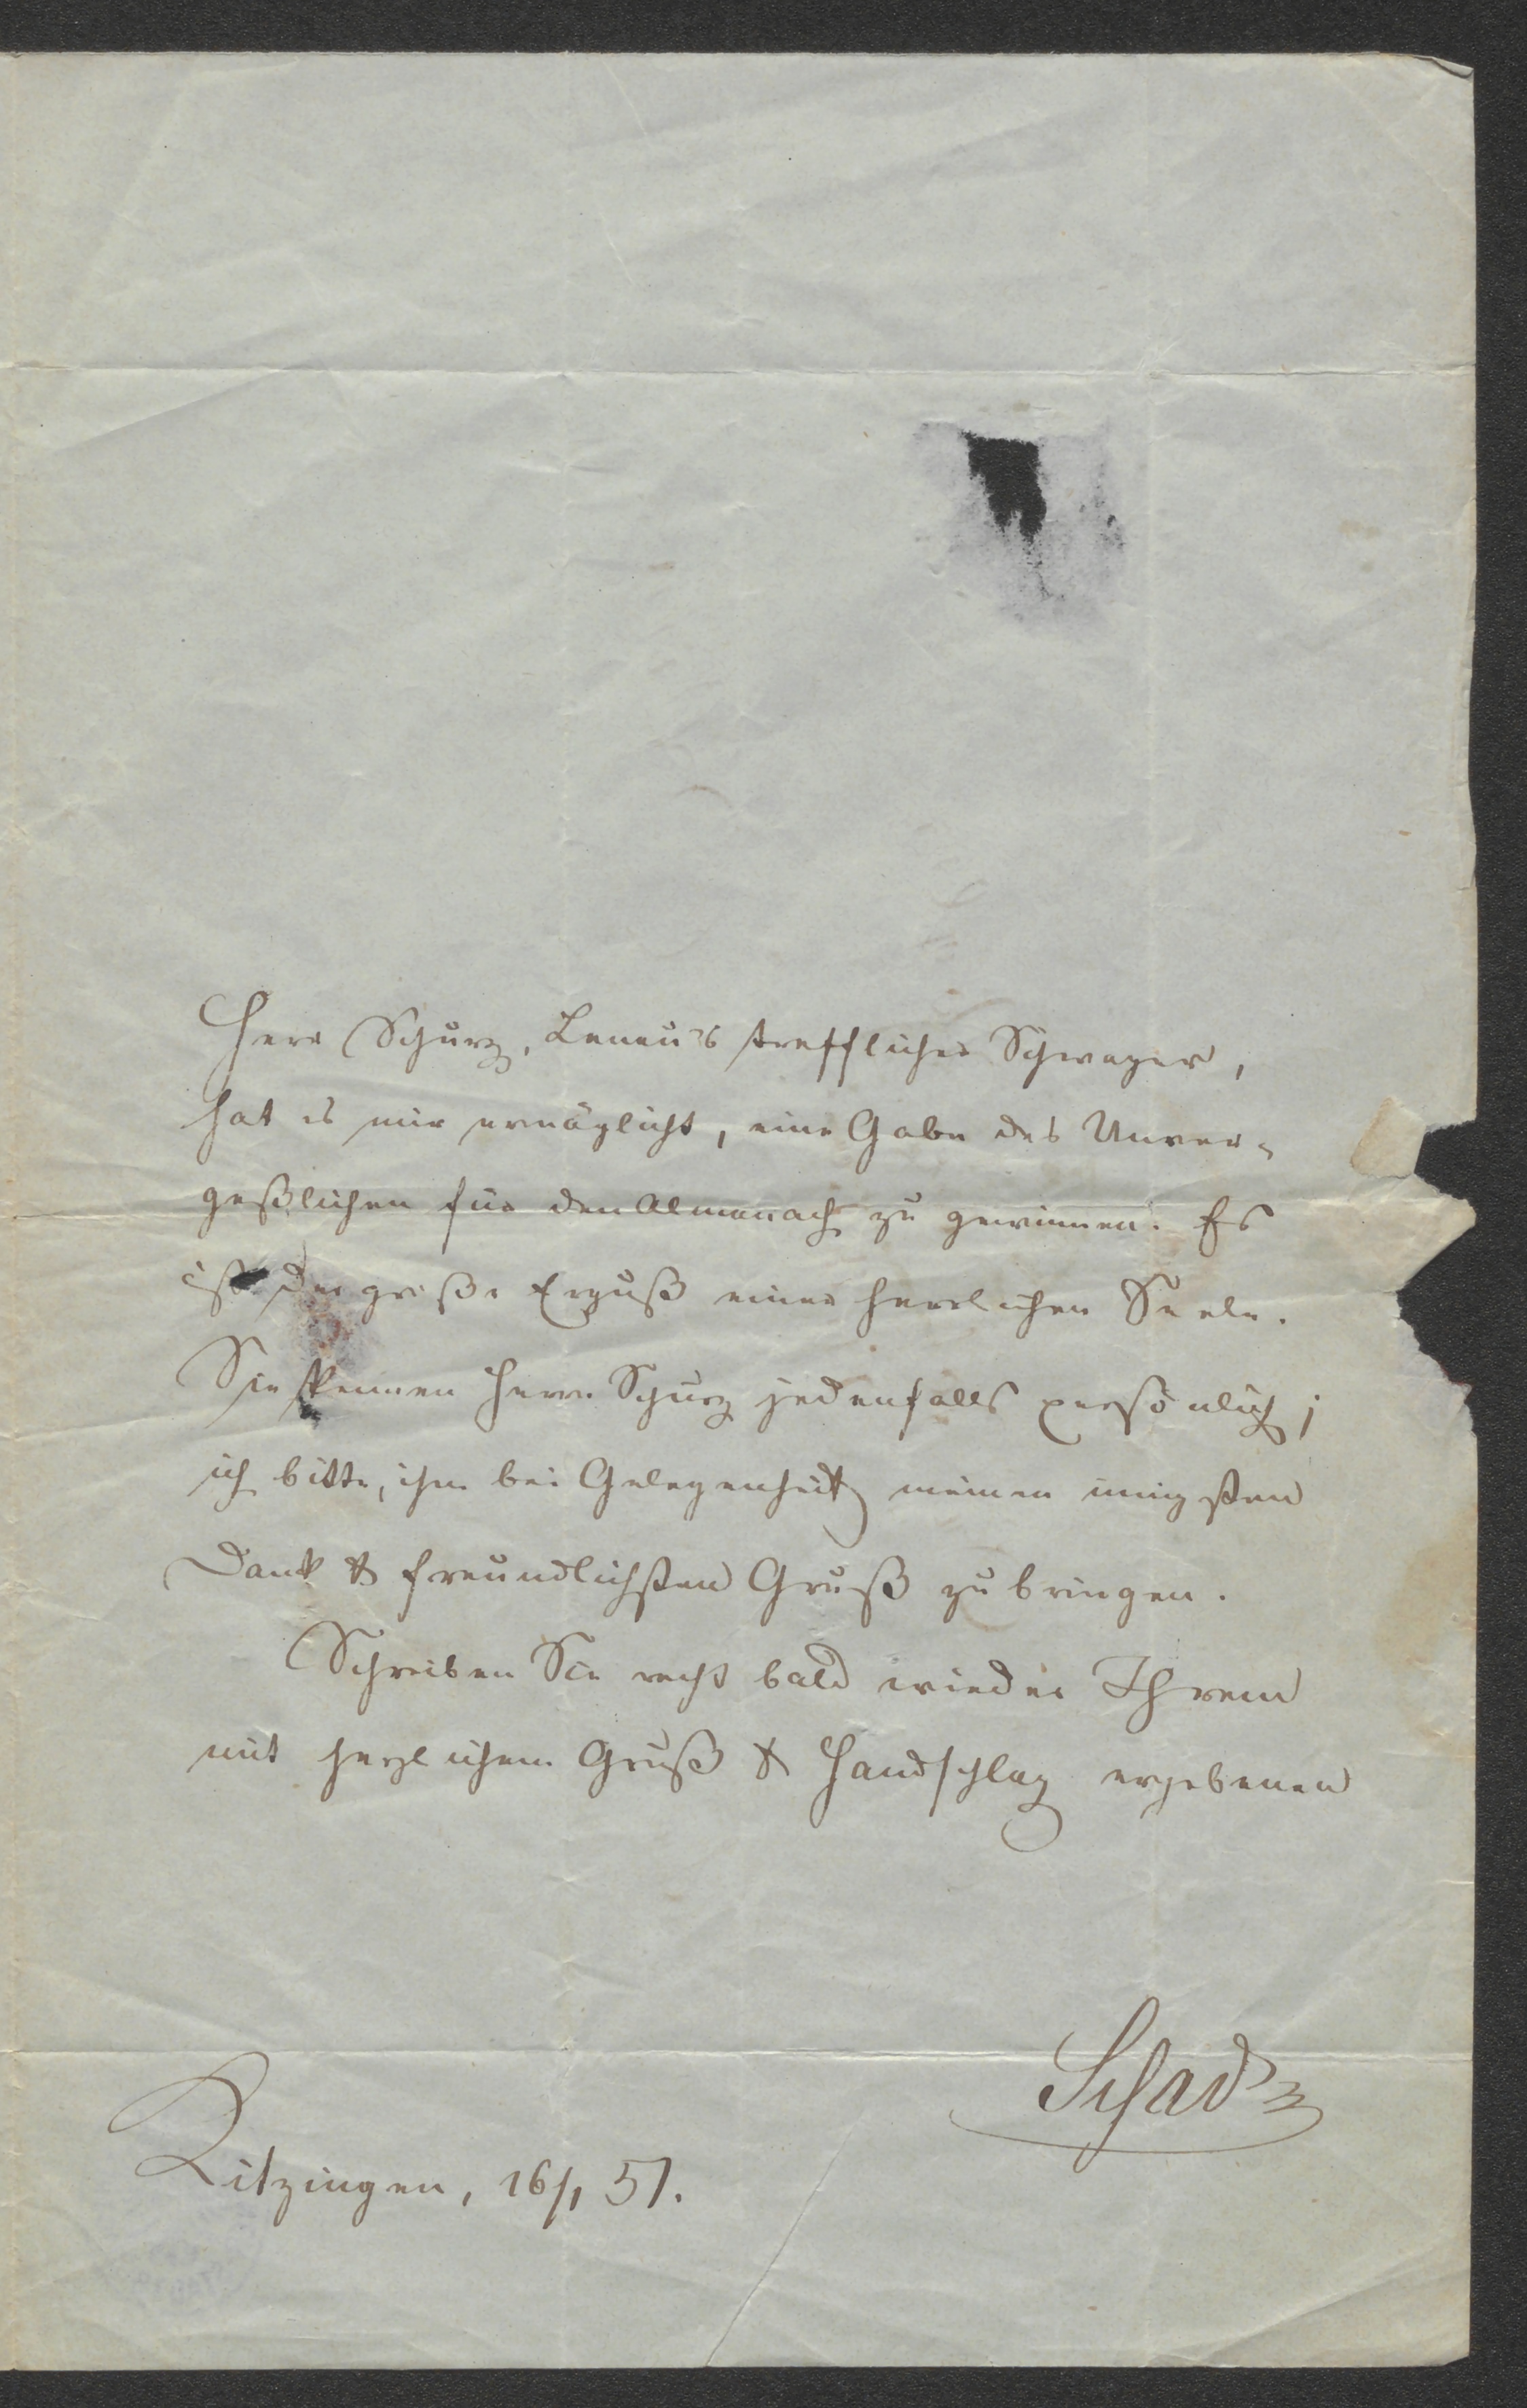 Herr Schurz, Lenau's trefflicher Schwager,
hat es mir ermöglicht, eine Gabe des Unver-
geßlichen für den Almanach zu gewinnen. Es
ist der große Erguß einer herrlichen Seele.
Sie kennen Herrn Schurz jedenfalls persönlich;
ich bitte, ihm bei Gelegenheit meinen innigsten
Dank & freundlichsten Gruß zu bringen.
Schreiben Sie recht bald wieder Ihrem
mit herzlichem Gruß & Handschlag ergebenen
Schad
Kitzingen, 16/1 51.